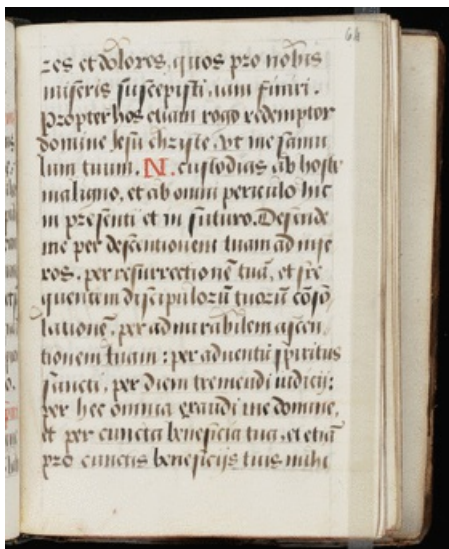 64
res et dolores, quos pro nobis
miseris suscepisti, iam finiri.
Propter hos etiam rogo redemptor
domine Jesu christe, vt me famu
lum tuum. N. custodias ab hoste
maligno, et ab omni periculo hic
in presenti et in futuro. Defende
me per descentionem tuam ad infe
ros, per resurrectionē tuā, et fre
quentem discipulorū tuorū cōso
lationē, per admirabilem ascen
tionem tuam: per aduentū spiritus
sancti, per diem tremendi iudicij:
per hec omnia exaudi me domine,
et per cuncta beneficia tua, et etiā
pro cunctis beneficijs tuis mihi